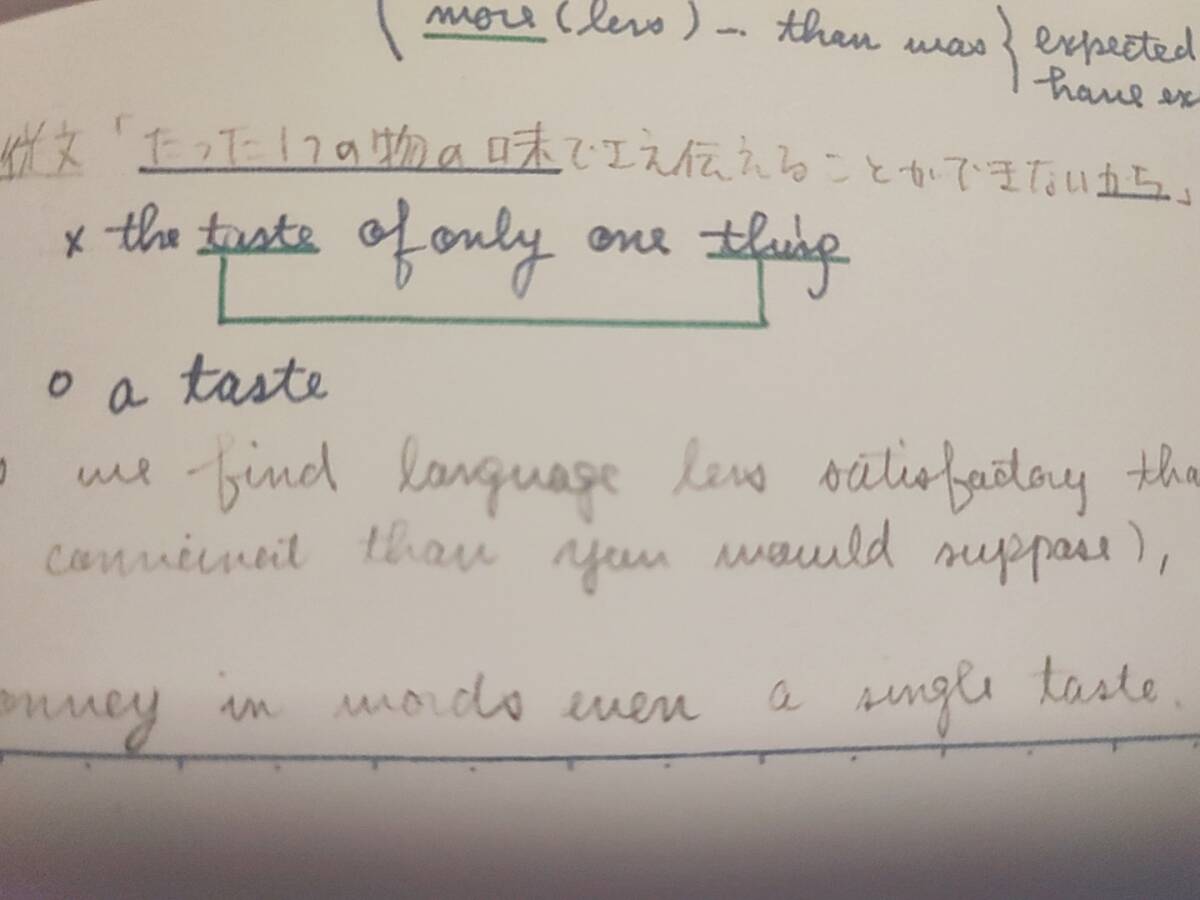 ( more (less) … than was } expected
have ex
従文「たった1つの物の味でさえ伝えることができないから」
× the taste of only one thing
○ a taste
we find language less satisfactory tha
convenient than you would suppose),
onvey in words even a single taste.